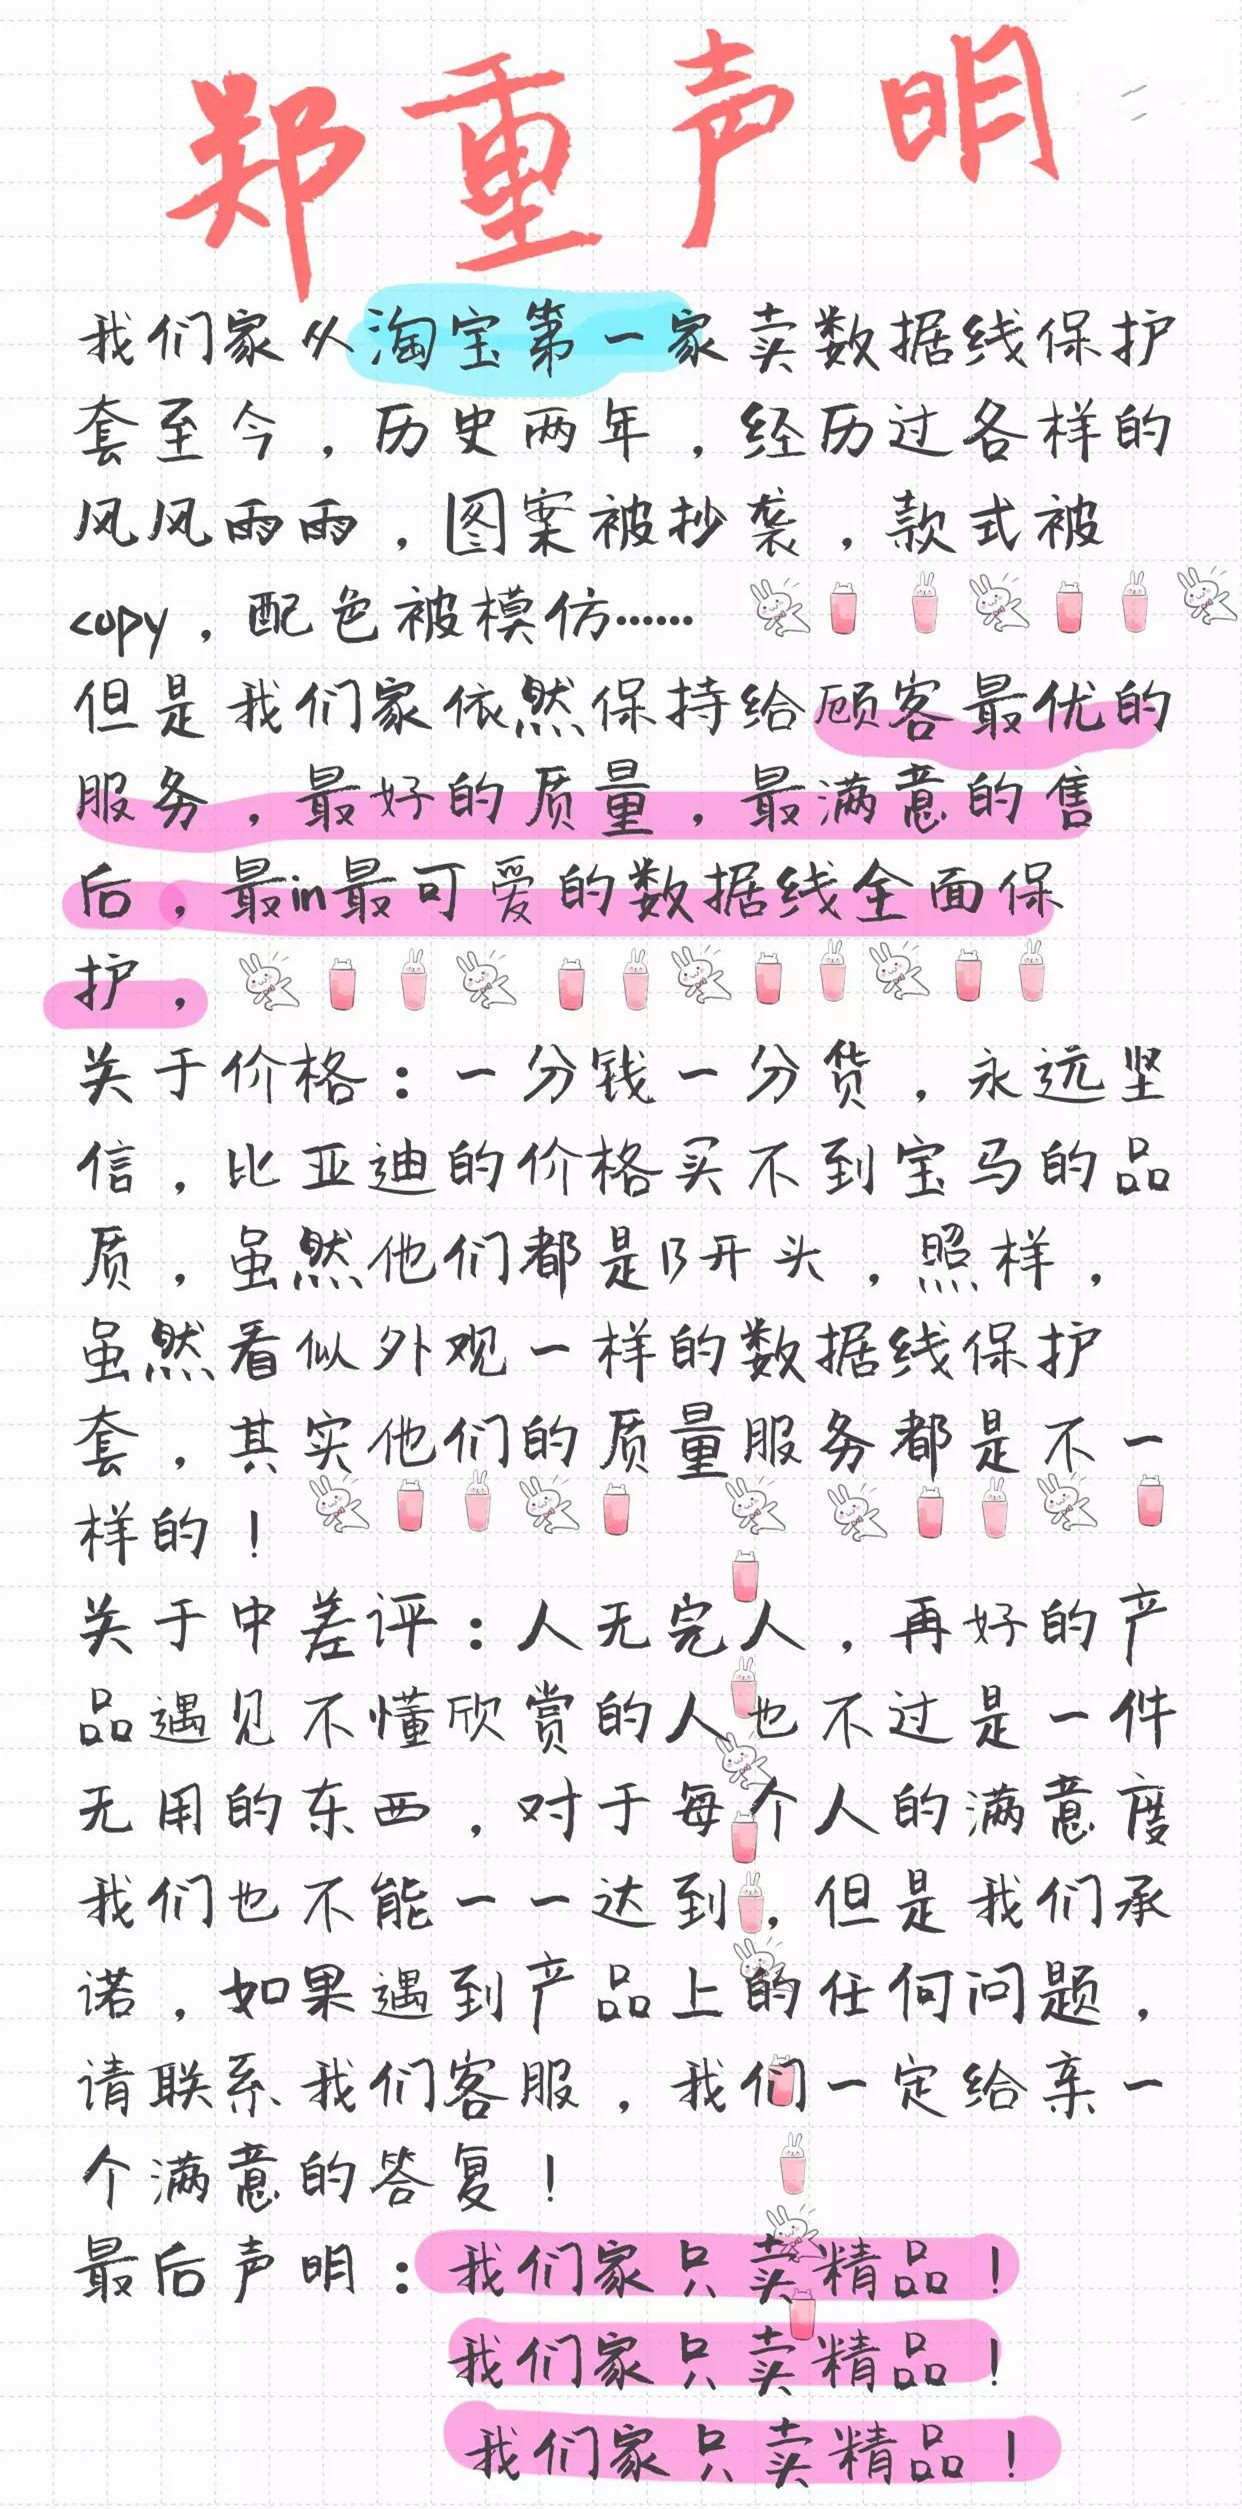 郑重声明
我们家从淘宝第一家卖数据线保护
套至今，历史两年，经历过各样的
风风雨雨，图案被抄袭，款式被
copy，配色被模仿……
但是我们家依然保持给顾客最优的
服务，最好的质量，最满意的售
后，最in最可爱的数据线全面保
护，
关于价格：一分钱一分货，永远坚
信，比亚迪的价格买不到宝马的品
质，虽然他们都是B开头，照样，
虽然看似外观一样的数据线保护
套，其实他们的质量服务都是不一
样的！
关于中差评：人无完人，再好的产
品遇见不懂欣赏的人也不过是一件
无用的东西，对于每个人的满意度
我们也不能一一达到，但是我们承
诺，如果遇到产品上的任何问题，
请联系我们客服，我们一定给亲一
个满意的答复！
最后声明：我们家只卖精品！
我们家只卖精品！
我们家只卖精品！